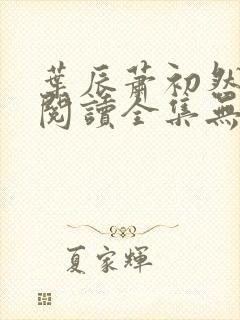 葉辰蕭初然
閱讀全集無
夏家輝